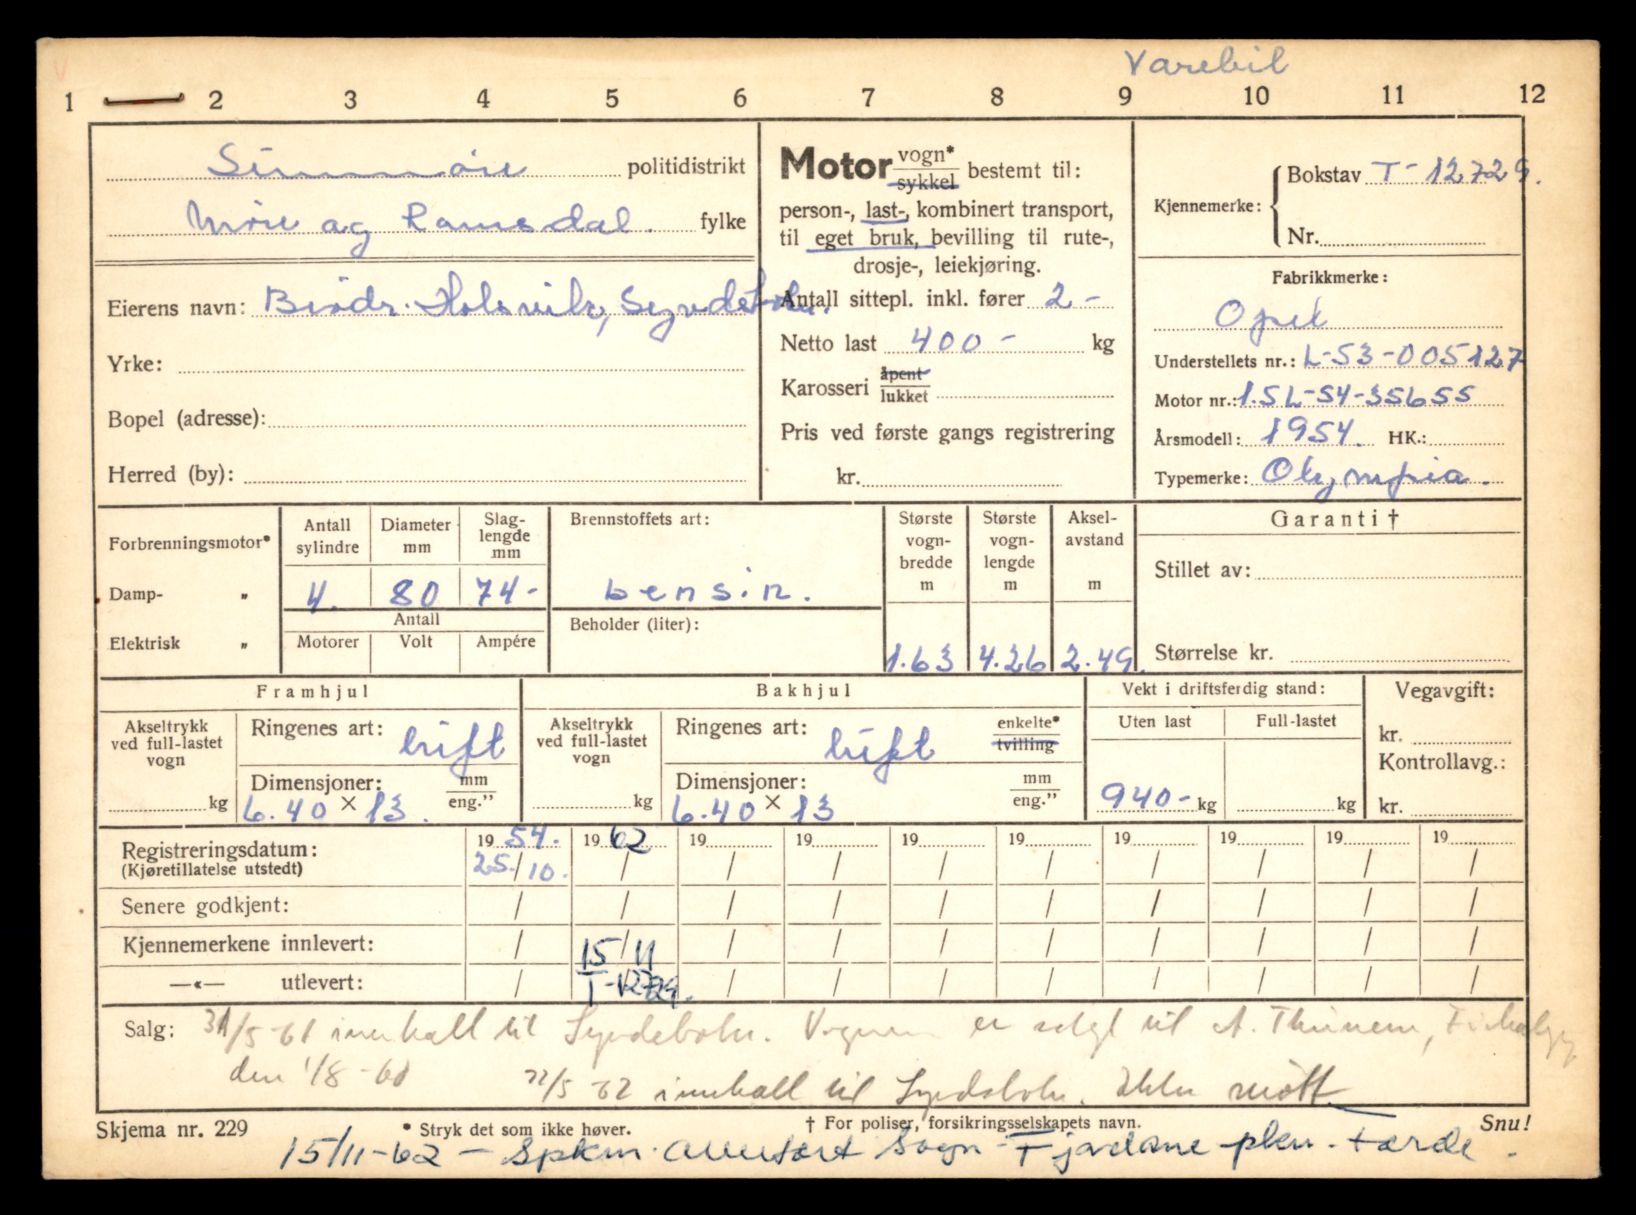 Varebil
1 2 3 4 5 6 7 8 9 10 11 12
Sunnmøre politidistrikt
Møre og Romsdal. fylke
Eierens navn: Brødr. Holsvik, Syvdsbotn.
Yrke:
Bopel (adresse):
Herred (by):
Motor vogn* sykkel bestemt til:
person-, last-, kombinert transport,
til eget bruk, bevilling til rute-,
drosje-, leiekjøring.
Antall sittepl. inkl. fører 2 -
Netto last 400 - kg
Karosseri åpent lukket
Pris ved første gangs registrering
kr.
Kjennemerke: Bokstav T- 12729.
Nr.
Fabrikkmerke:
Opel
Understellets nr.: L-53-005127
Motor nr.: 1.5L-54-35655
Årsmodell: 1954. HK.:
Typemerke: Olympia.
Forbrenningsmotor*
Damp- „
Elektrisk „
Antall sylindre
Diameter mm
Slag-lengde mm
4. 80 74-
Antall
Motorer Volt Ampére
Brennstoffets art:
bensin.
Beholder (liter):
Største vogn-bredde m
Største vogn-lengde m
Aksel-avstand m
1.63 4.26 2.49.
Garanti †
Stillet av:
Størrelse kr.
Framhjul
Akseltrykk ved full-lastet vogn
kg
Ringenes art: luft
Dimensjoner: mm eng.”
6.40 × 13.
Bakhjul
Akseltrykk ved full-lastet vogn
kg
Ringenes art: luft enkelte* tvilling
Dimensjoner: mm eng.”
6.40 × 13
Vekt i driftsferdig stand:
Uten last Full-lastet
940- kg kg
Vegavgift:
kr.
Kontrollavg.:
kr.
19 54. 19 62 19 19 19 19 19 19 19 19
Registreringsdatum: 25./10. / / / / / / / / /
(Kjøretillatelse utstedt)
Senere godkjent: / / / / / / / / / /
Kjennemerkene innlevert: / 15/11 / / / / / / / /
—«— utlevert: / T-12729. / / / / / / / /
Salg: 31/5-61 innkalt til Syvdebotn. Vognen er solgt til A.
den 1/8-60 22/5 62 innkalt til Syvdsbotn. Ikke møtt
Skjema nr. 229 * Stryk det som ikke høver. † For poliser, forsikringsselskapets navn. Snu!
15/11-62 - Spkm. Sogn - Fjordane pkm. Førde.